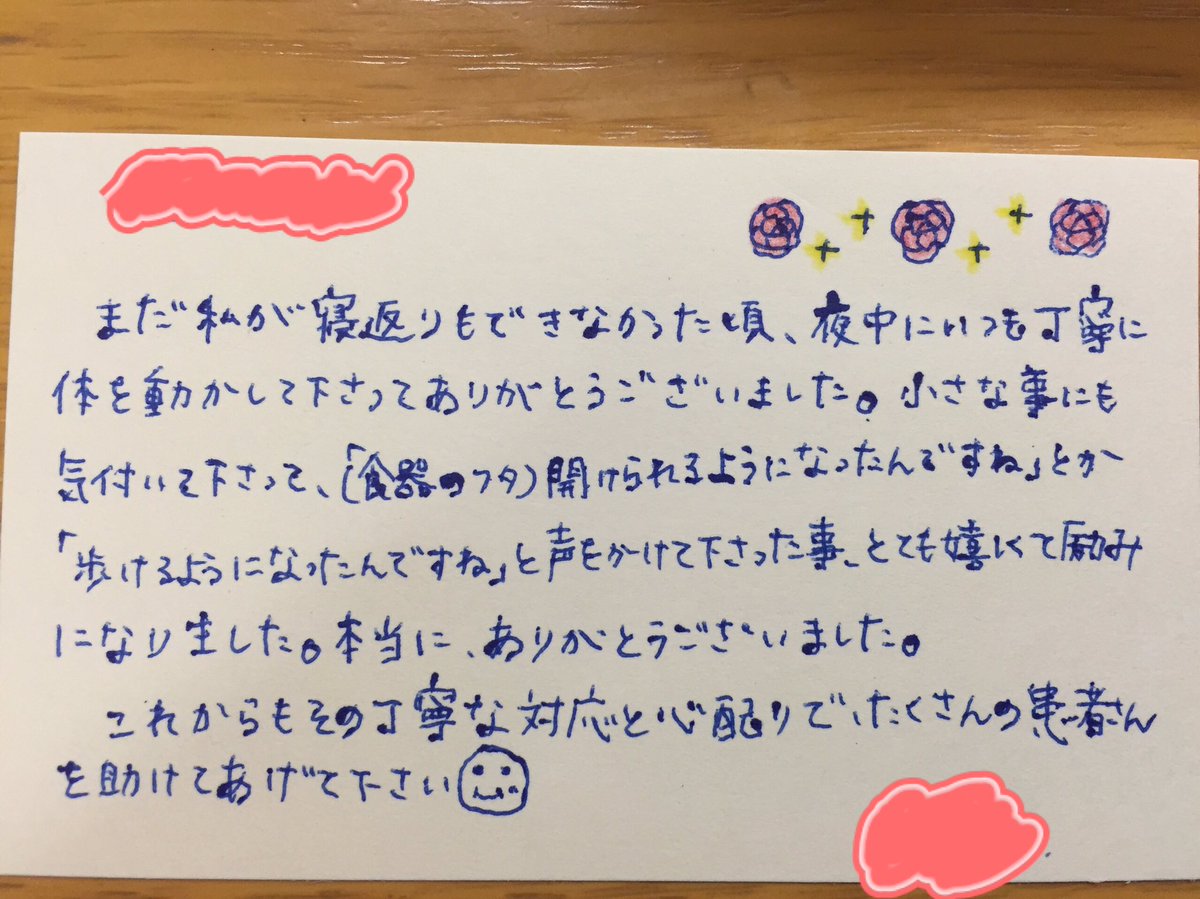 まだ私が寝返りもできなかった頃、夜中にいつも丁寧に
体を動かして下さってありがとうございました。小さな事にも
気付いて下さって、「(食器のフタ)開けられるようになったんですね」とか
「歩けるようになったんですね」と声をかけて下さった事、とても嬉しくて励み
になりました。本当に、ありがとうございました。
これからもその丁寧な対応と心配りで、たくさんの患者さん
を助けてあげて下さい